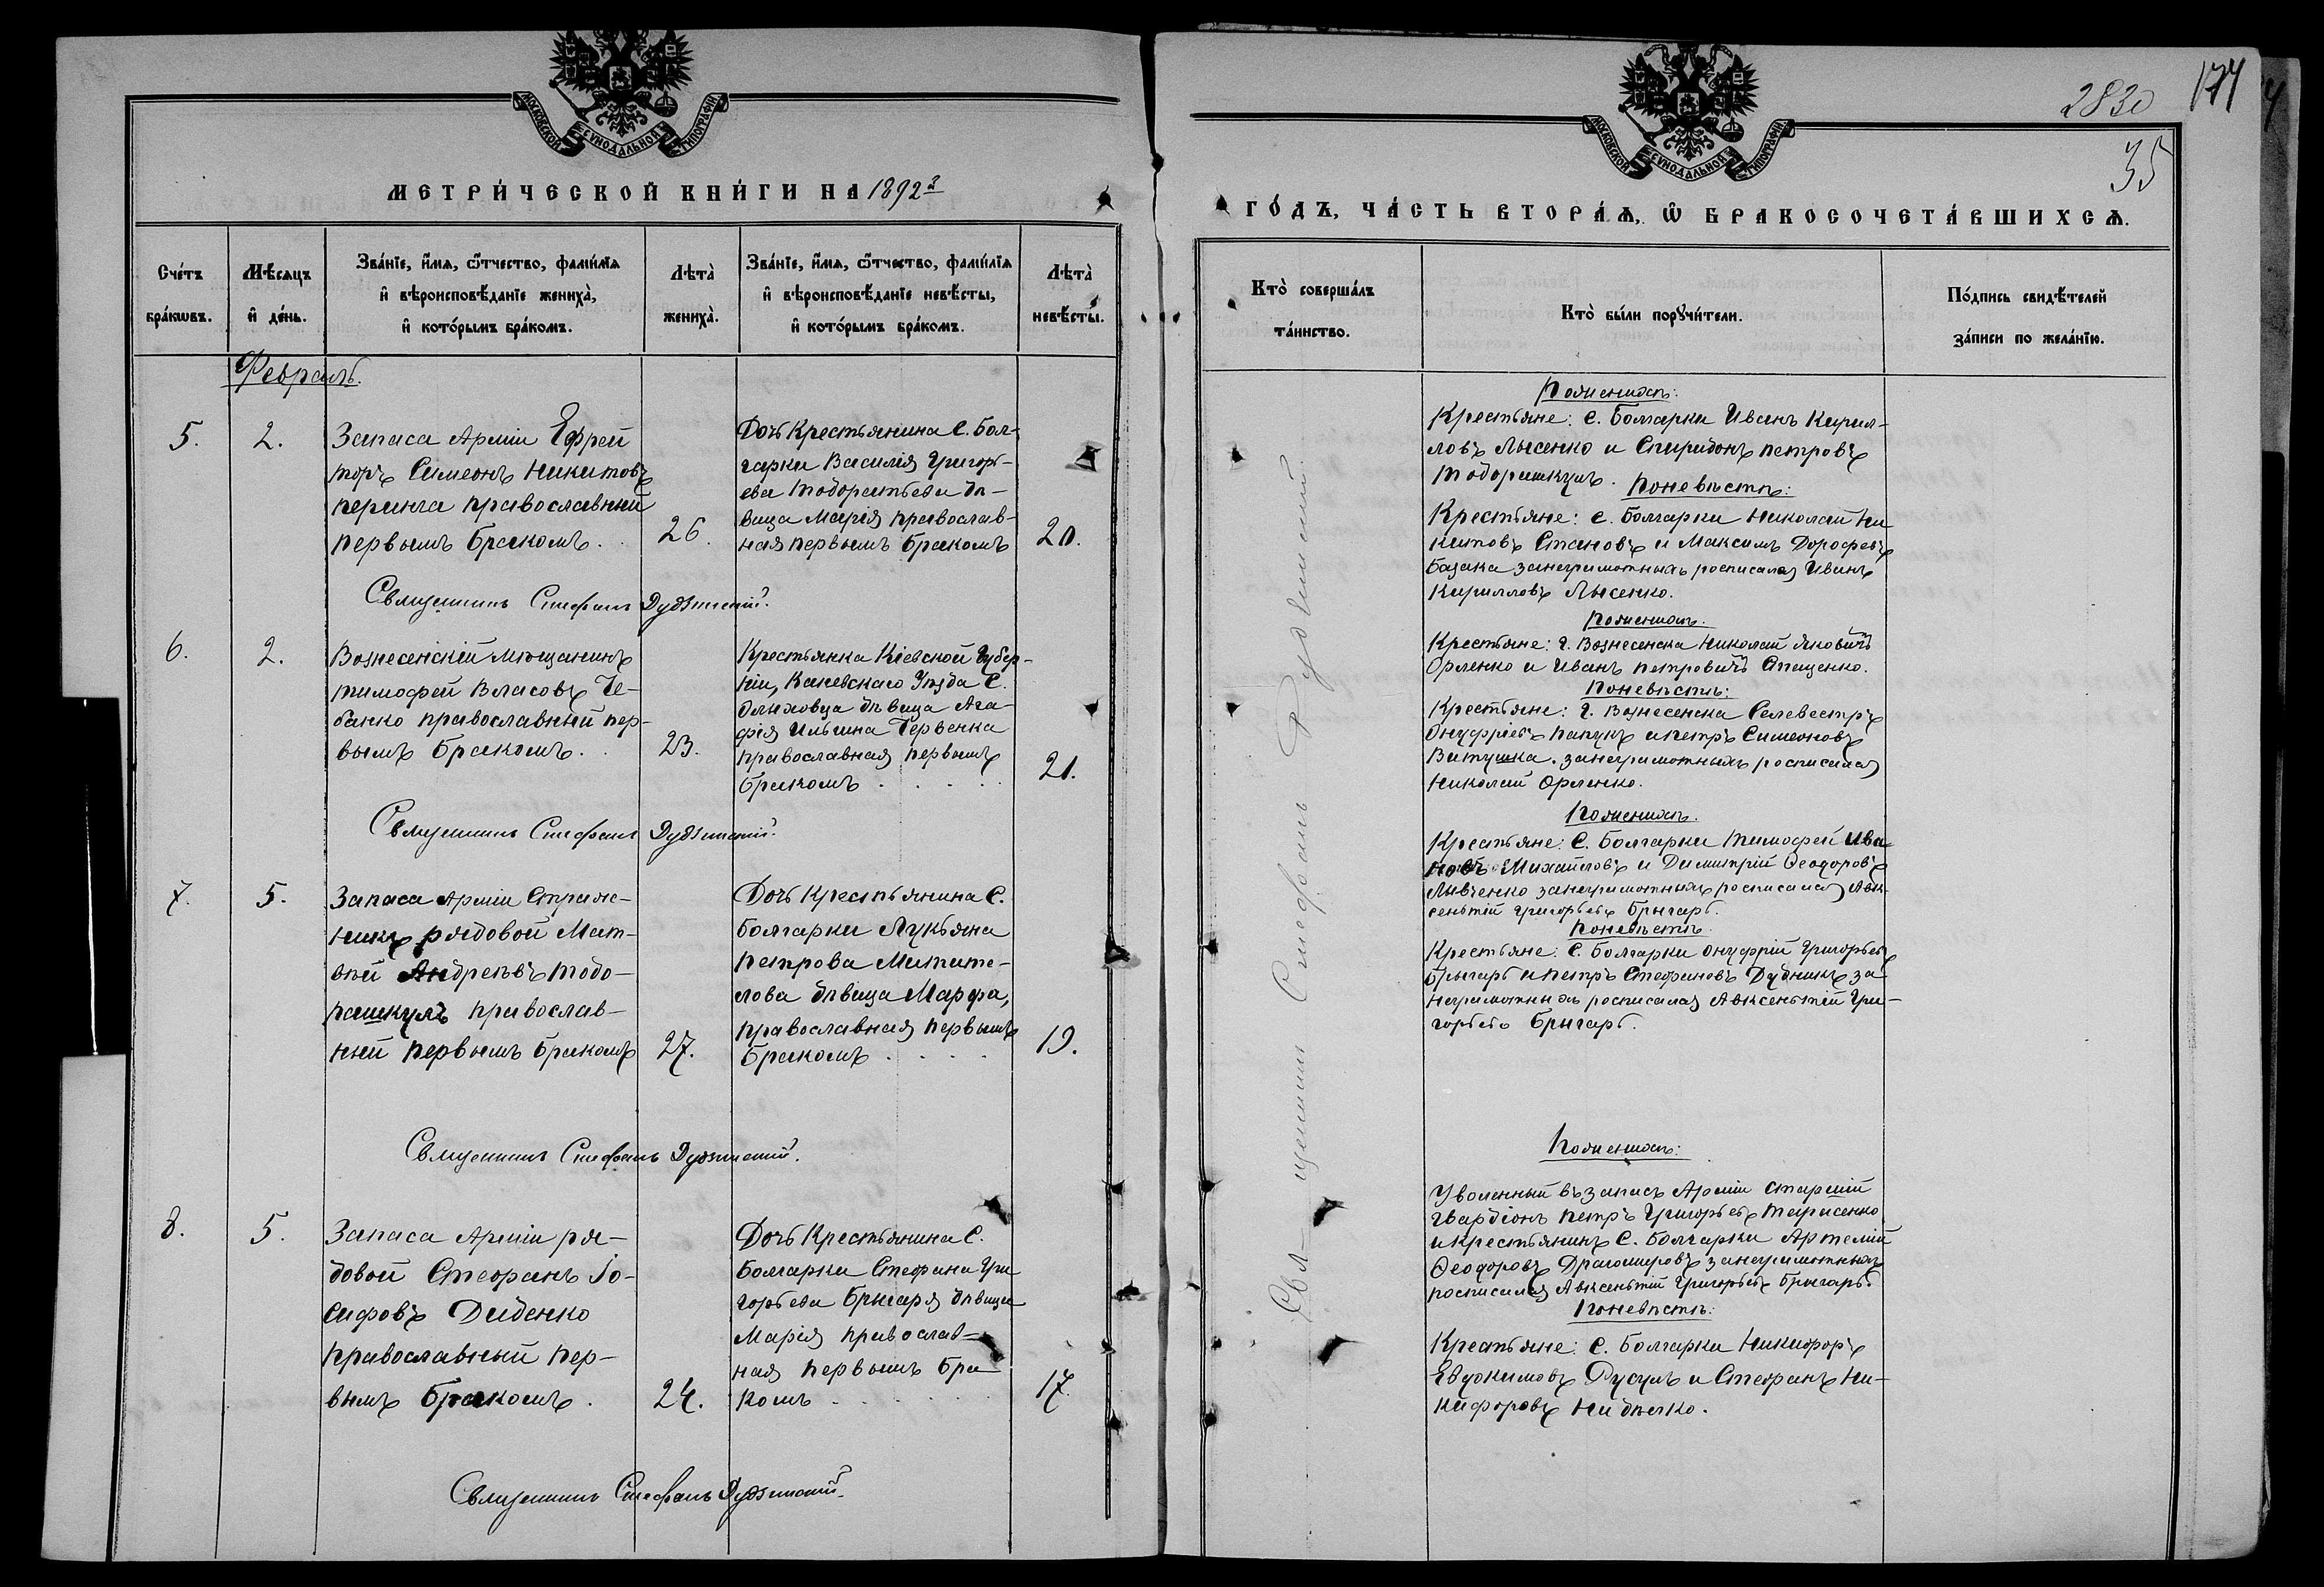 МОСКОВСКОЙ СУНОДАЛЬНОЙ ТИПОГРАФІИ
МЕТРИ́ЧЕСКОЙ КНИ́ГИ НА 1892 г
Сче́тъ бра́кѡвъ.
Мѣ́сяцъ и҆ де́нь.
Зва́нїе, и҆́мѧ, ѻ҆́тчество, фами́лїѧ
и҆ вѣроисповѣ́данїе жениха̀,
и҆ кото́рымъ бра́комъ.
Лѣта̀ жениха̀.
Зва́нїе, и҆́мѧ, ѻ҆́тчество, фами́лїѧ
и҆ вѣроисповѣ́данїе невѣ́сты,
и҆ кото́рымъ бра́комъ.
Лѣта̀ невѣ́сты.
Февраль.
5.
2.
Запаса Арміи Ефрей
торъ Симеонъ Никитовъ
перинга православный
первымъ бракомъ.
26.
Дочь Крестьянина С. Бол-
гарки Василія Григорь-
ева дѣ-
вица Марія православ-
ная первымъ бракомъ
20.
Священникъ Стефанъ
6.
2.
Вознесенскій мѣщанинъ
тимофей Власовъ Че-
банко православный пер-
вымъ бракомъ.
23.
Крестьянка Кіевской Губер-
ніи, Каневскаго Уѣзда С.
дѣвица Ага-
фія Ильина Червенка
православная первымъ
бракомъ
21.
Священникъ Стефанъ
7.
5.
Запаса Арміи Страж-
никъ рядовой Мат-
вей Андреевъ тодо-
рашкулъ православ-
ный первымъ бракомъ
27.
Дочь Крестьянина С.
Болгарки Лукьяна
петрова
дѣвица Марфа,
православная первымъ
бракомъ
19.
Священникъ Стефанъ
8.
5.
Запаса Арміи ря-
довой Стефанъ Іо-
сифовъ Диденко
православный пер-
вымъ бракомъ.
24.
Дочь Крестьянина С.
Болгарки Стефана Гри
горьева Брыгаря дѣвица
Марія православ-
ная первымъ бра-
комъ
17
Священникъ Стефанъ
2830
177
35
МОСКОВСКОЙ СУНОДАЛЬНОЙ ТИПОГРАФІИ
ГО́ДЪ, ЧА́СТЬ ВТОРА́Ѧ, Ѽ БРАКОСОЧЕТА́ВШИХСѦ.
Кто̀ соверша́лъ
та́инство.
Кто̀ бы́ли порꙋчи́тели.
По́дпись свидѣ́телей
за́писи по жела́нїю.
Священникъ Стефанъ
Поженихѣ:
Крестьяне: С. Болгарки Иванъ Кирил-
ловъ Лысенко и Спиридонъ петровъ
тодорашкулъ. Поневѣстѣ:
Крестьяне: С. Болгарки Николай Ни
китовъ Становъ и Максимъ Дорофеевъ
Базака занеграмотныхъ росписался Иванъ
Кирилловъ Лысенко.
Поженихѣ.
Крестьяне: г. Вознесенска Николай Яковичъ
Орленко и Иванъ петровичъ Спащенко.
Поневѣстѣ:
Крестьяне: г. Вознесенска Селевестръ
Онуфріевъ папукъ и петръ Симеоновъ
Витушка. занеграмотныхъ росписался
Николай Орленко.
Поженихѣ.
Крестьяне: С. Болгарки тимофей Ива
новъ Михайловъ и Димитрій Ѳеодоровъ
Левченко занеграмотныхъ росписался Авк-
сентій Григорьевъ Брыгарь.
Поневѣстѣ
Крестьяне: С. Болгарки Онуфрій Григорьевъ
Брыгарь и петръ Стефановъ Дудникъ за
неграмотныхъ росписался Авксентій Гри-
горьевъ Брыгарь.
Поженихѣ:
Уволенный въ запасъ Арміи старшій
гвардіонъ петръ Григорьевъ тарасенко
и крестьянинъ С. Болгарки Артемій
Ѳеодоровъ Драгомировъ занеграмотныхъ
росписался Авксентій Григорьевъ Брыгарь.
Поневѣстѣ:
Крестьяне: С. Болгарки Никифоръ
Евдокимовъ Русулъ и Стефанъ Ни-
кифоровъ